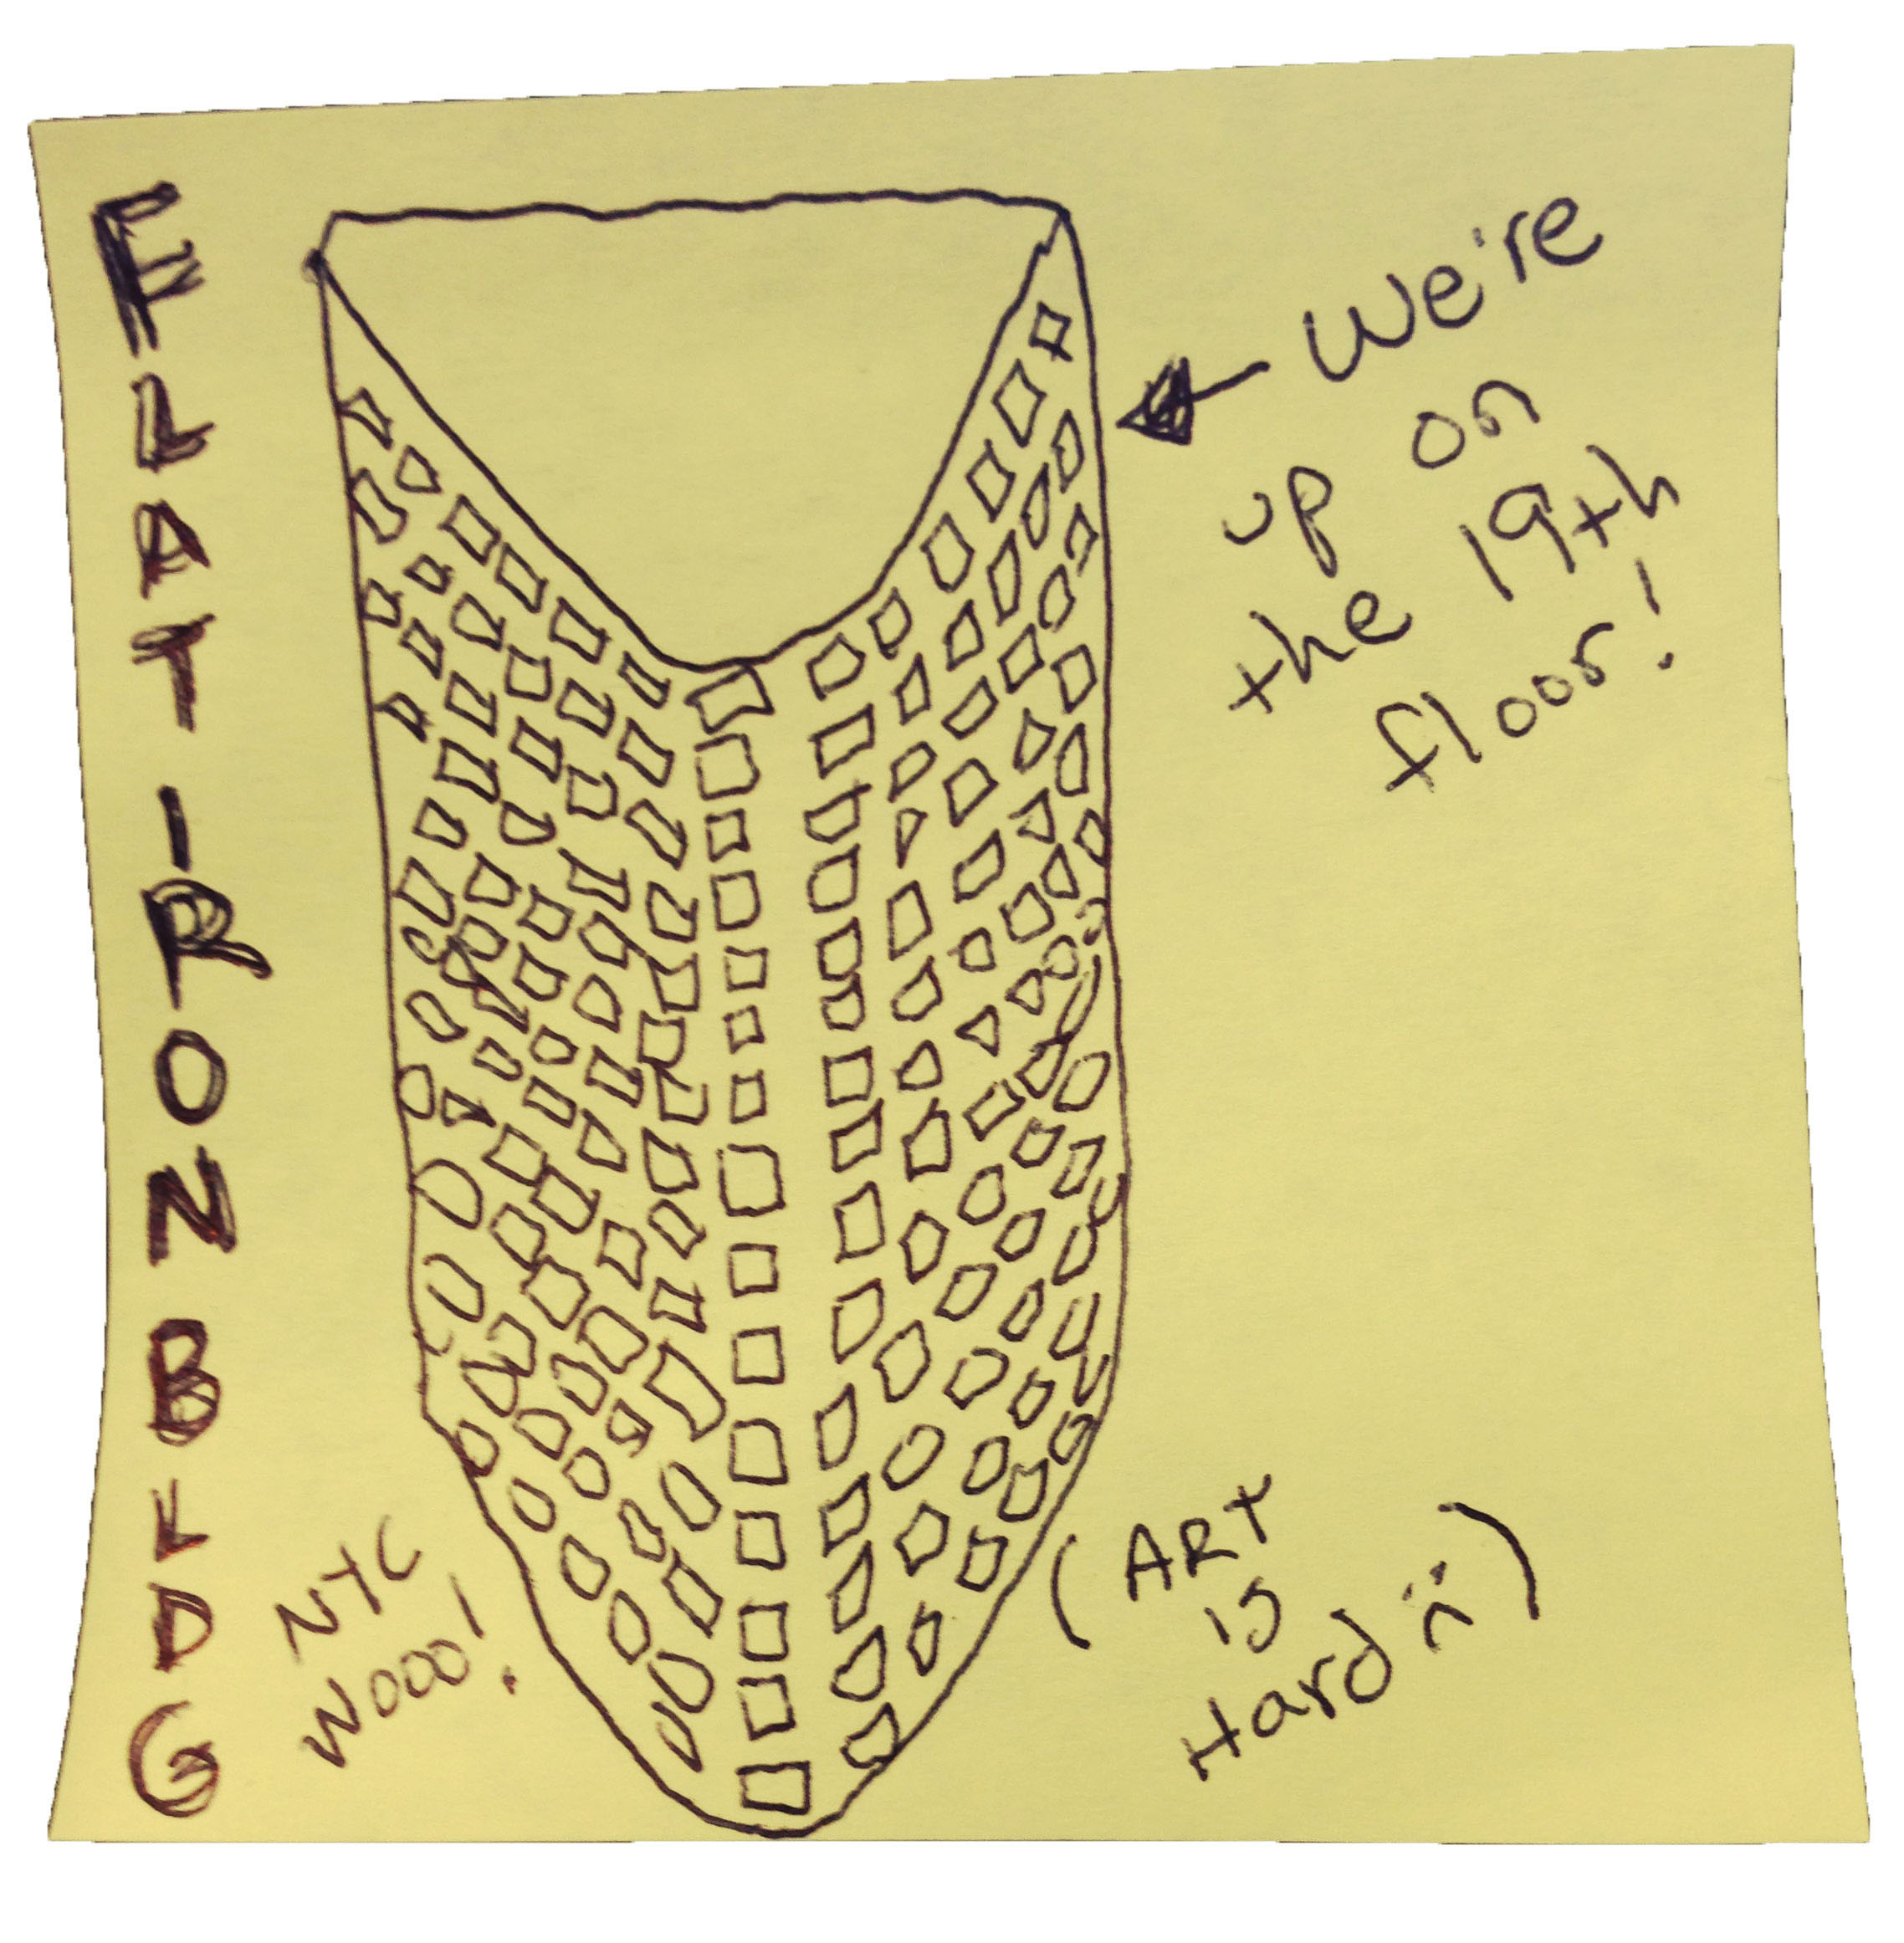 FLATIRON BLDG
We're
up on
the 19th
floor!
NYC
Wooo!
(ART
is
Hard :()